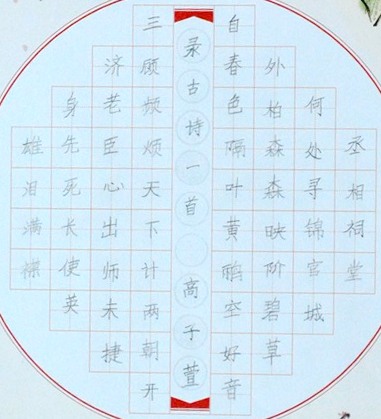 丞相祠堂
何处寻锦官城
外柏森森映阶碧草
自春色隔叶黄鹂空好音
录古诗一首 高子萱
三顾频烦天下计两朝开
济老臣心出师未捷
身先死长使英
雄泪满襟